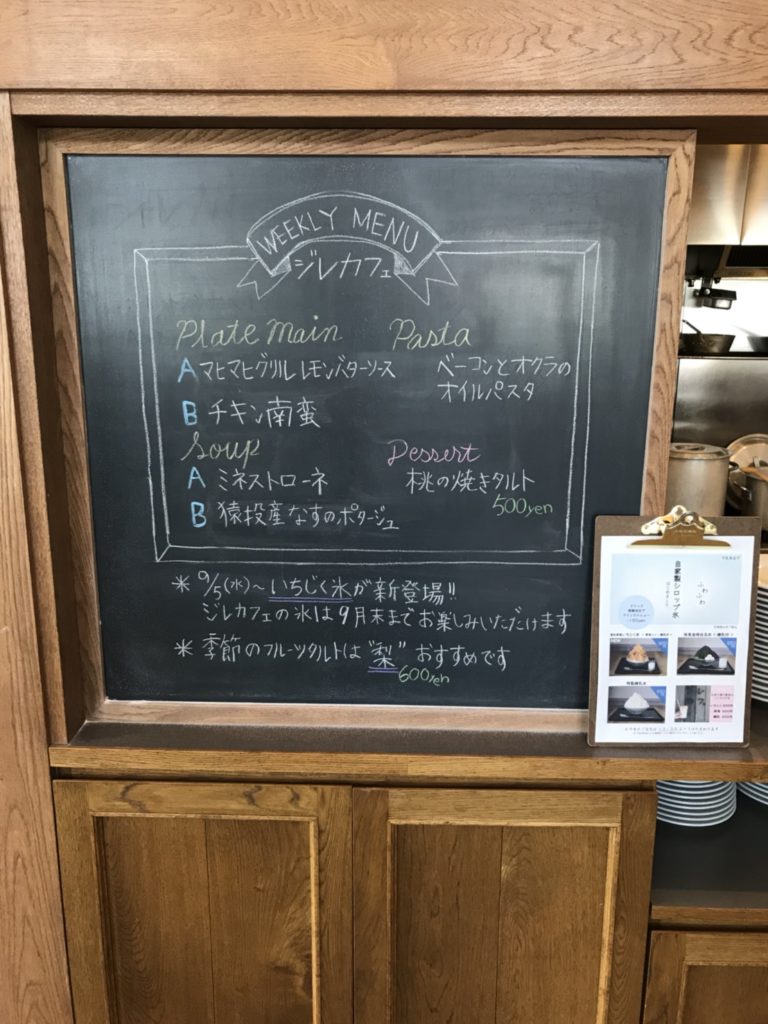 WEEKLY MENU
ジレカフェ
Plate main
A マヒマヒグリル レモンバターソース
B チキン南蛮
Soup
A ミネストローネ
B 猿投産なすのポタージュ
Pasta
ベーコンとオクラの
オイルパスタ
Dessert
桃の焼きタルト
500yen
* 9/5(水)~ いちじく氷が新登場!!
ジレカフェの氷は9月末までお楽しみいただけます
* 季節のフルーツタルトは"梨"おすすめです
600yen
ふわふわ
自家製シロップ氷